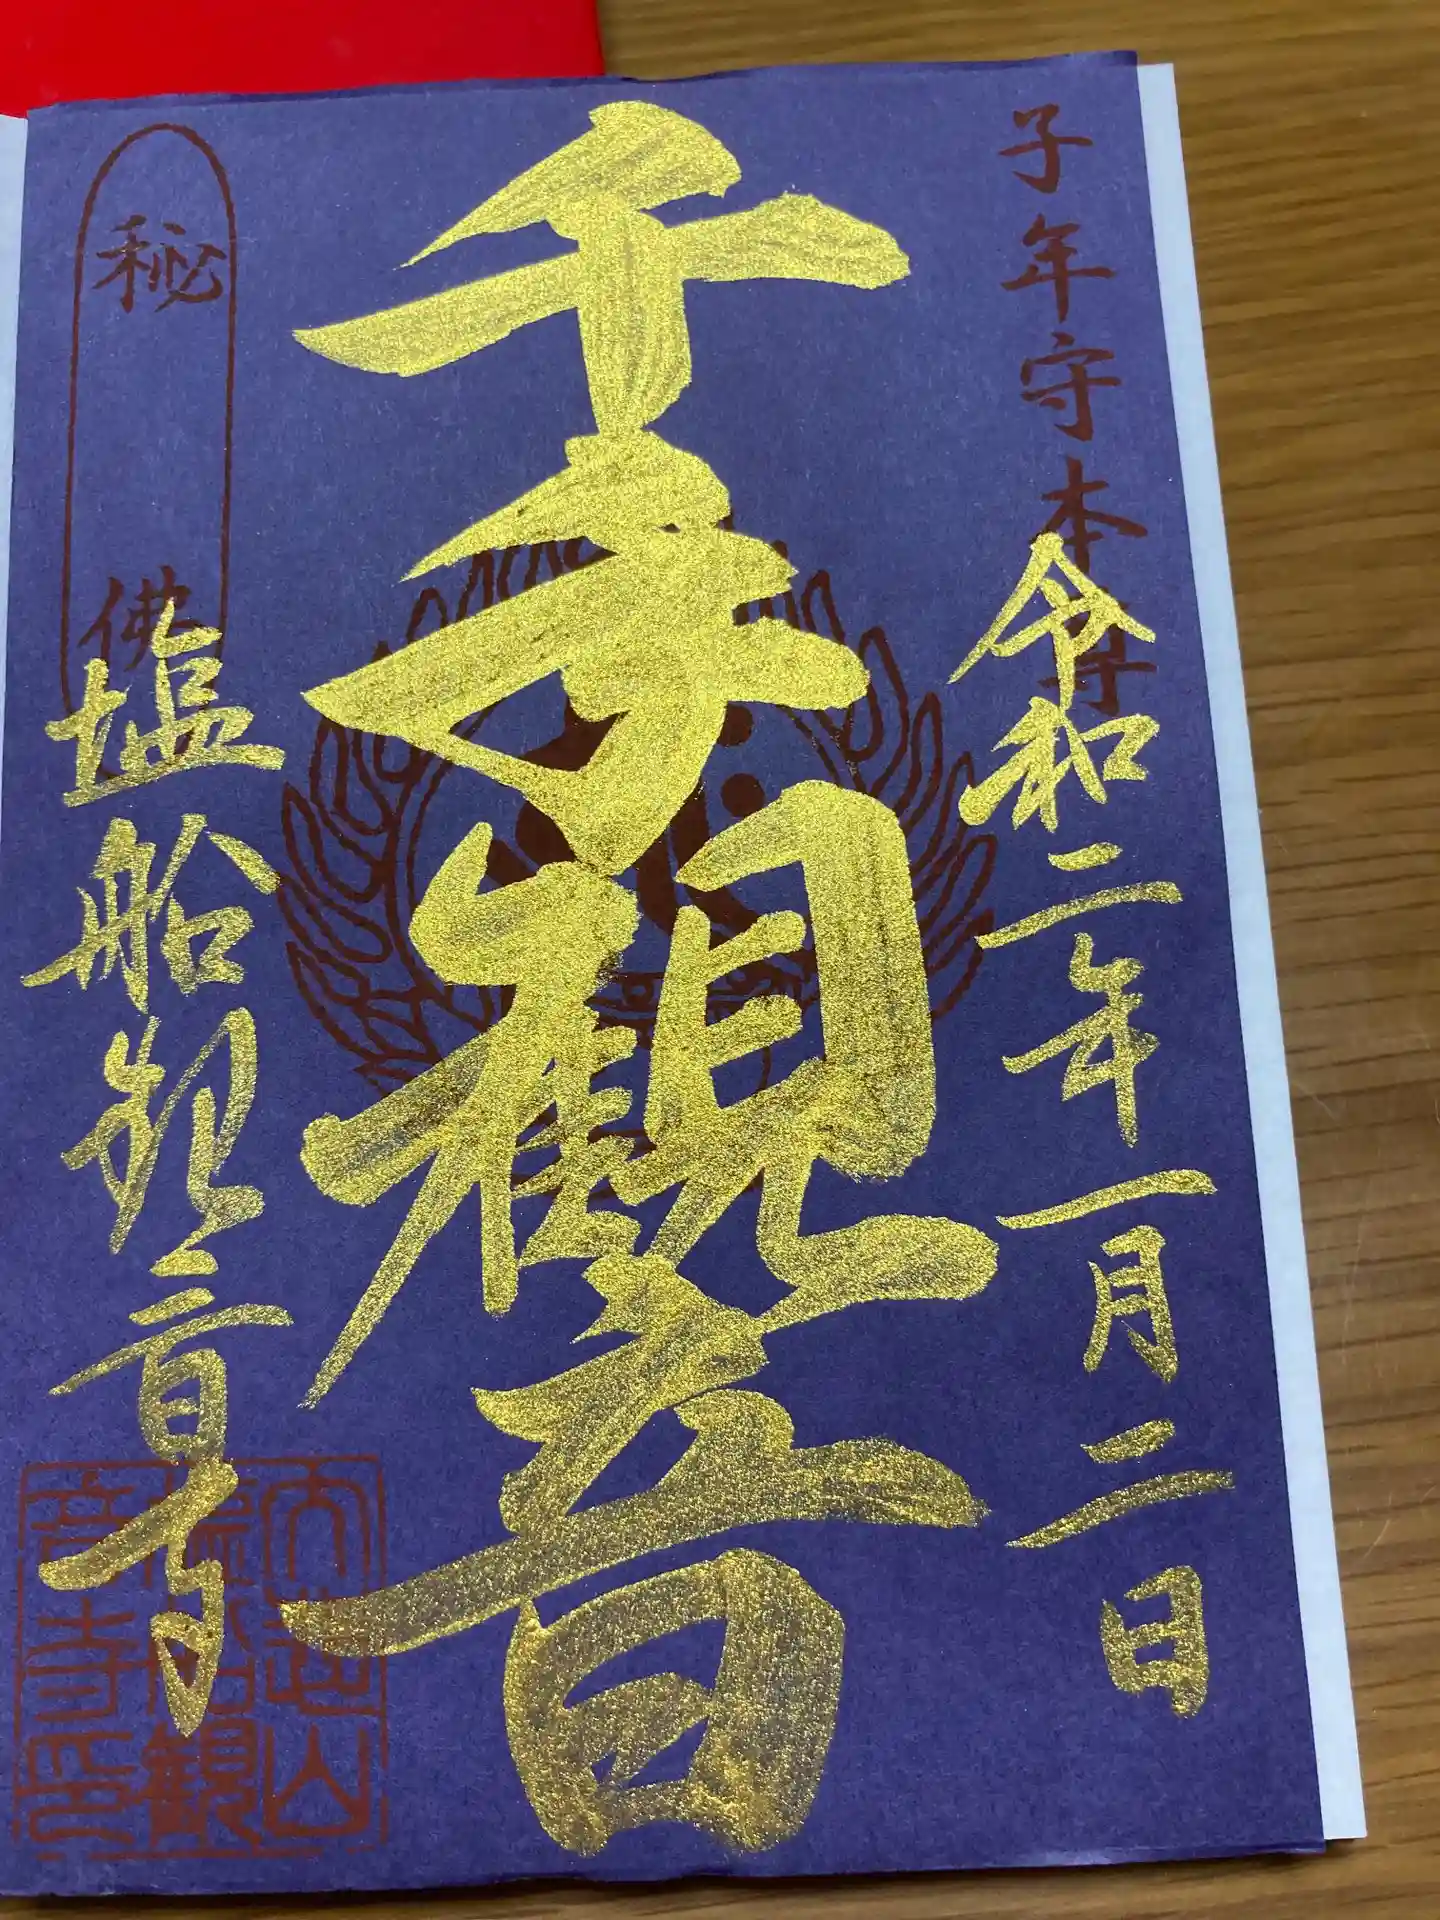 子年守本尊
令和二年一月二日
千手観音
秘佛
塩船観音寺
大悲山
塩船観
音寺印